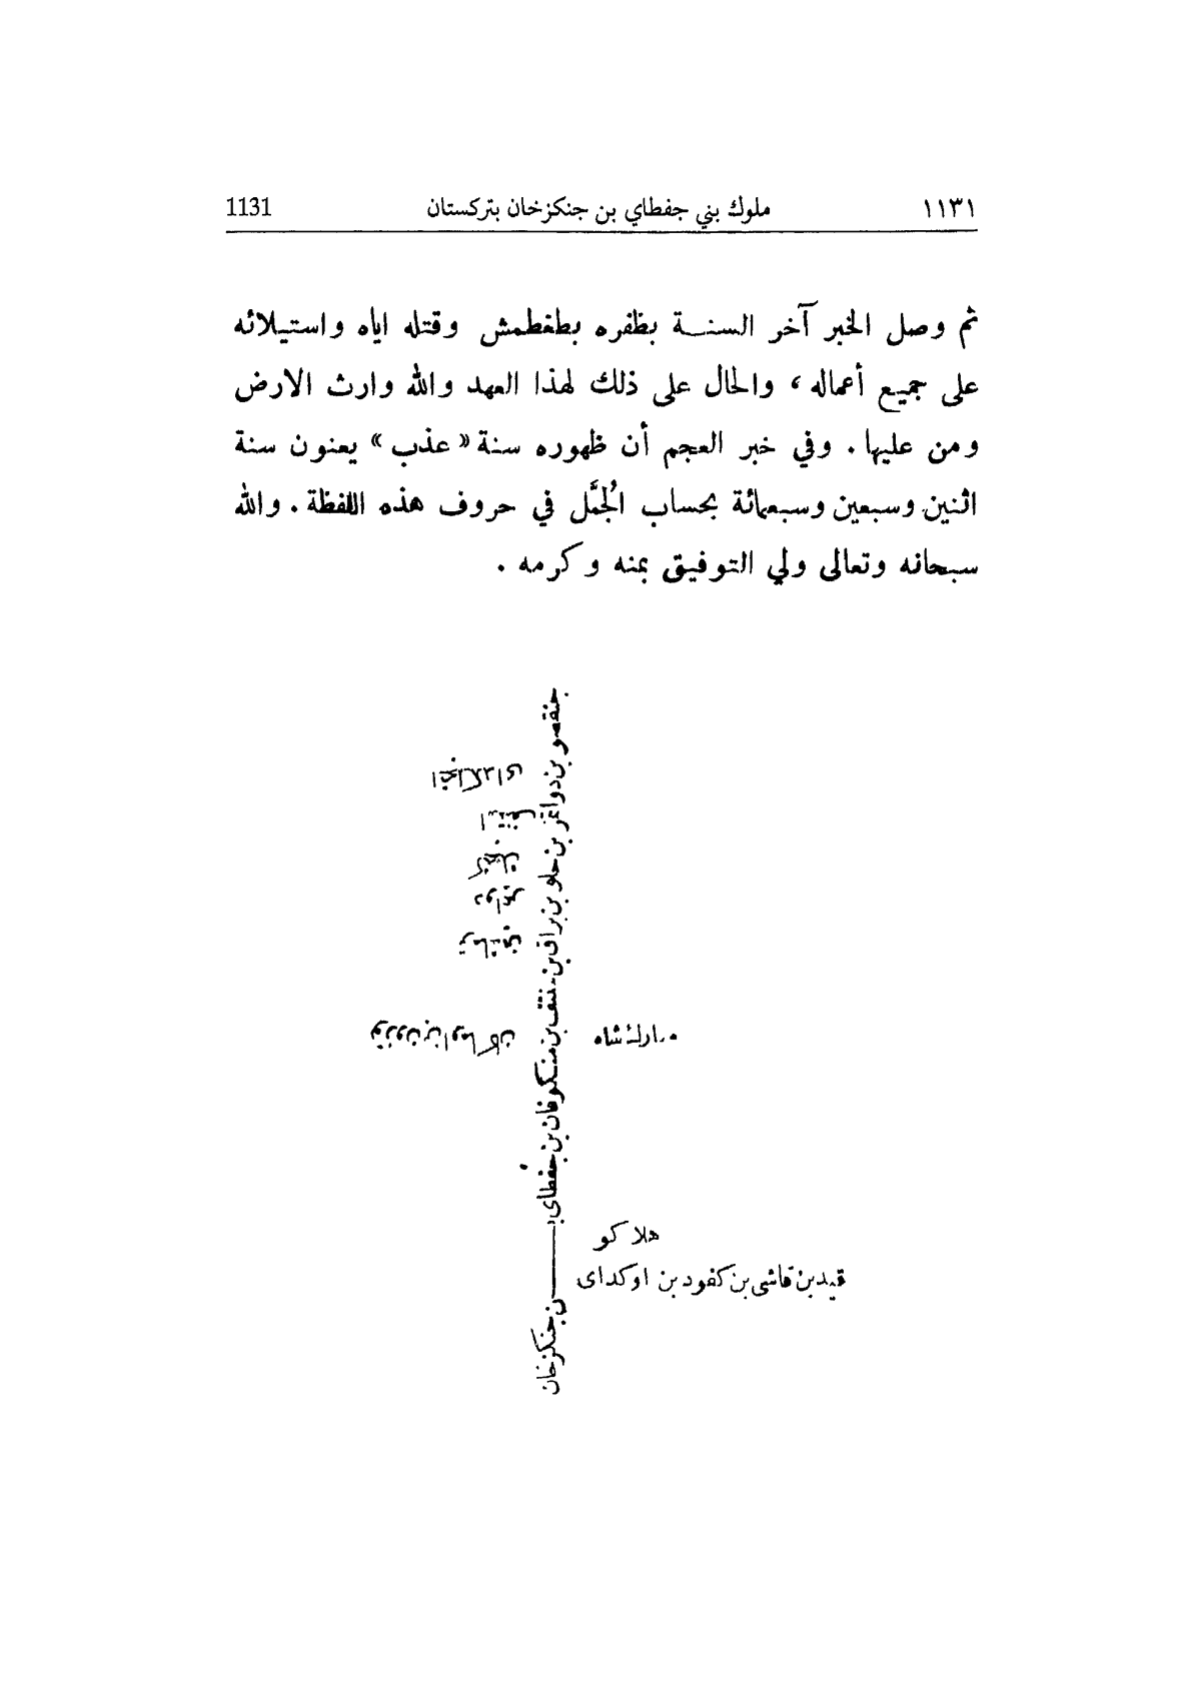 ١١٣١ ملوك بني جفطاي بن جنكزخان بتركستان 1131
ثم وصل الخبر آخر السنة بظفره بطغطمش وقتله اياه واستيلائه
على جميع أعماله ، والحال على ذلك لهذا العهد والله وارث الارض
ومن عليها . وفي خبر العجم أن ظهوره سنة « عذب » يعنون سنة
اثنين وسبعين وسبعمائة بحساب الجُمَّل في حروف هذه اللفظة . والله
سبحانه وتعالى ولي التوفيق بمنه وكرمه .
جنقصو بن دواتمر بن حلو بن براق بن بن منكوفان بن جفطاي بن جنكزخان
شاه
هلاكو
قيد بن قاشي بن كفود بن اوكداى